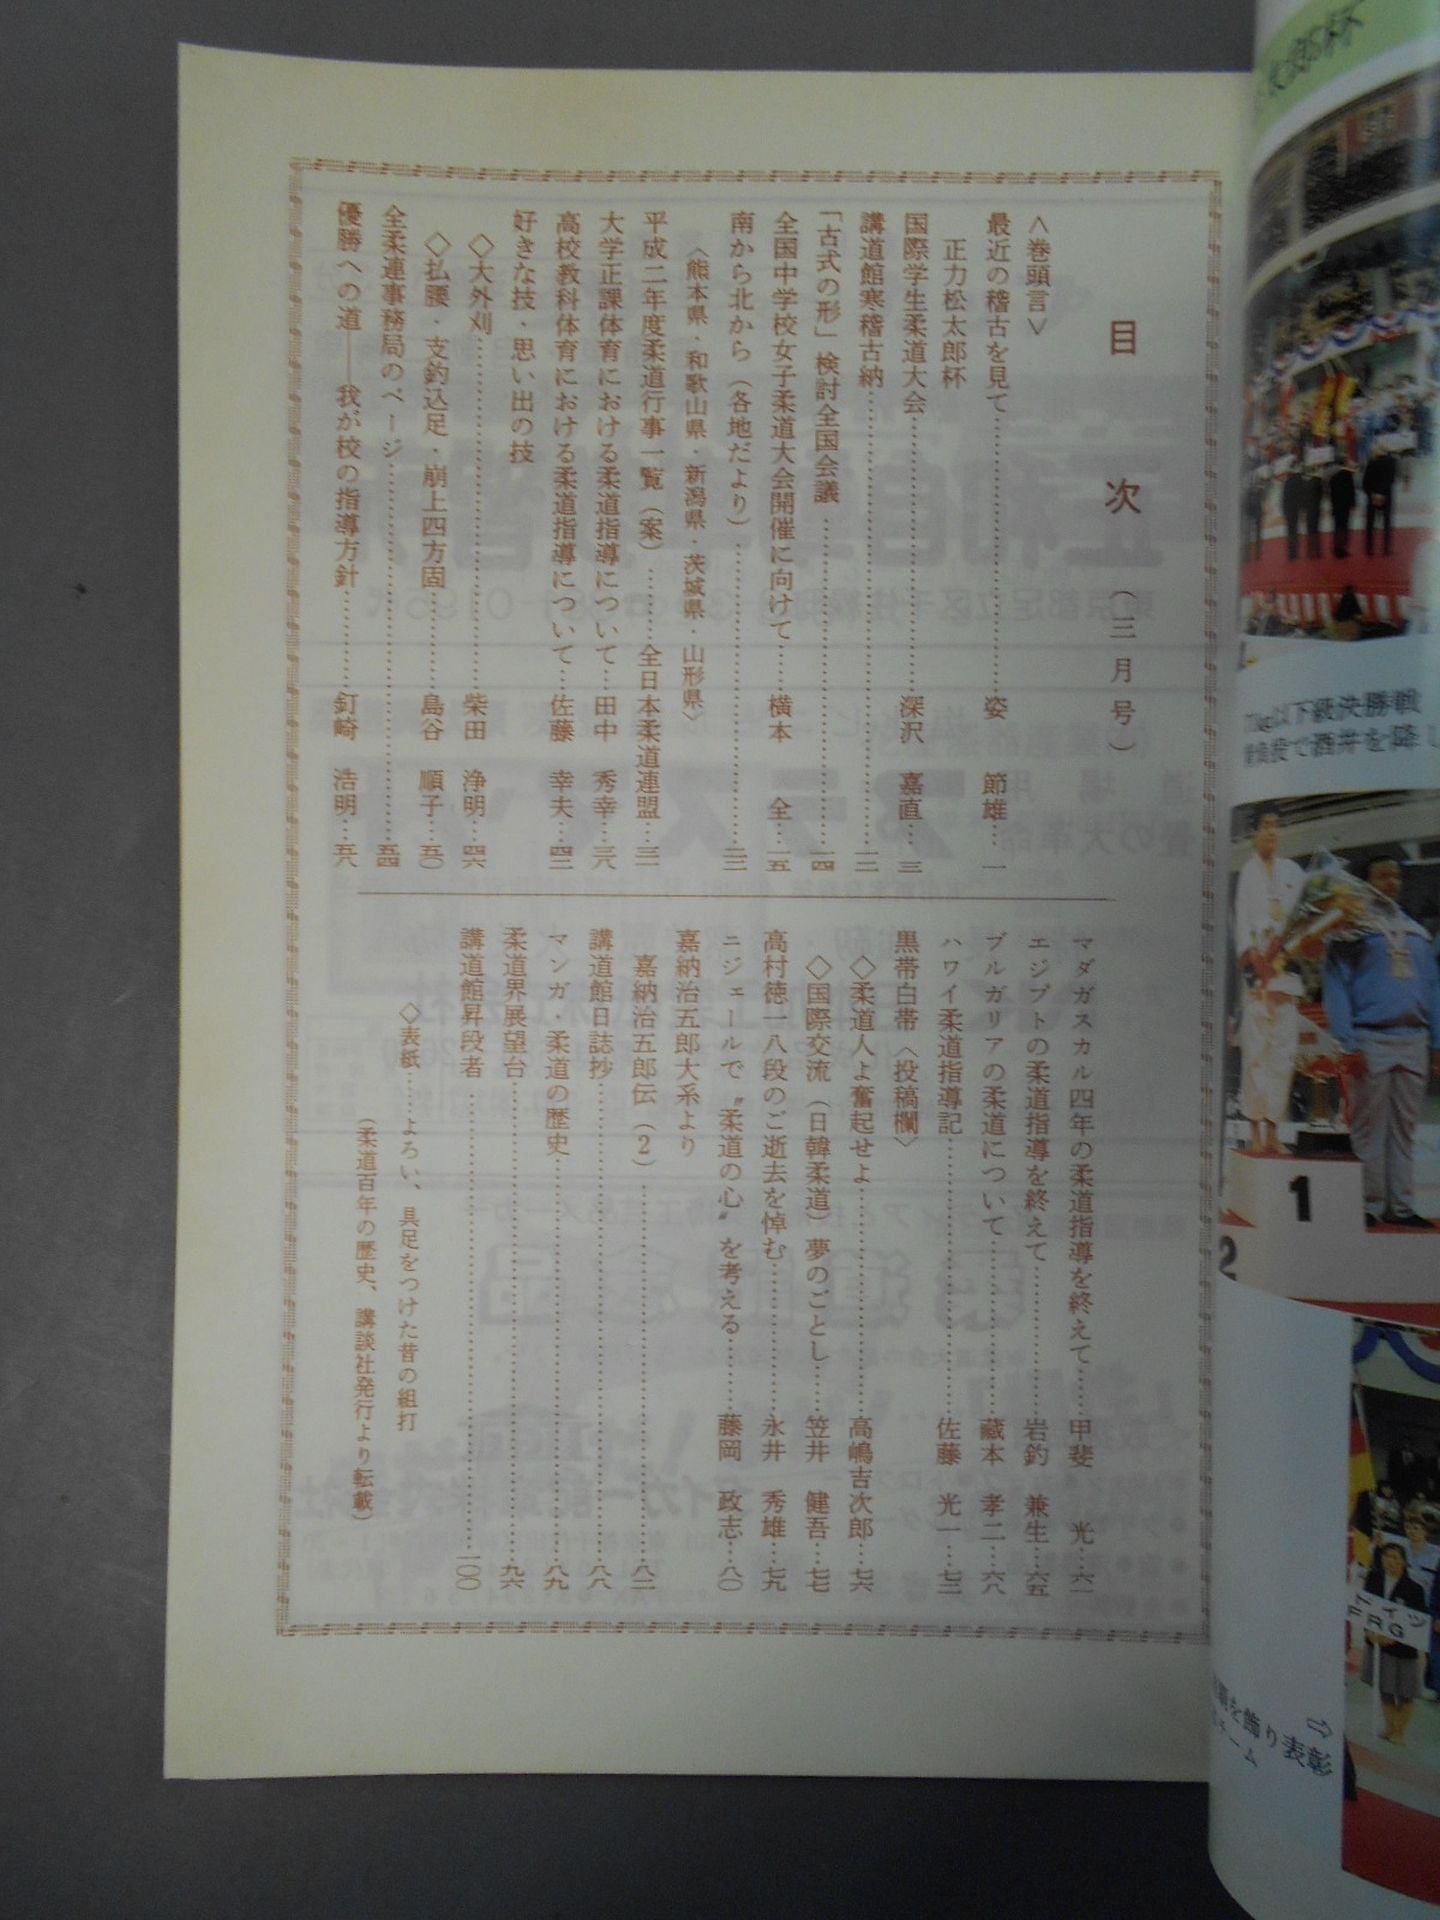 目次（三月号）
〈巻頭言〉
最近の稽古を見て…………姿 節雄…一
正力松太郎杯
国際学生柔道大会…………深沢 嘉直…三
講道館寒稽古納…………一二
「古式の形」検討全国会議…………一四
全国中学校女子柔道大会開催に向けて…………横本 全…一五
南から北から（各地だより）…………二三
〈熊本県・和歌山県・新潟県・茨城県・山形県〉
平成二年度柔道行事一覧（案）…………全日本柔道連盟…三二
大学正課体育における柔道指導について…田中 秀幸…三八
高校教科体育における柔道指導について…佐藤 幸夫…四二
好きな技・思い出の技
◇大外刈…………柴田 浄明…四六
◇払腰・支釣込足・崩上四方固…………島谷 順子…五〇
全柔連事務局のページ…………五四
優勝への道――我が校の指導方針…………釘崎 浩明…五八
マダガスカル四年の柔道指導を終えて……甲斐 光…六一
エジプトの柔道指導を終えて…………岩釣 兼生…六五
ブルガリアの柔道について…………蔵本 孝二…六八
ハワイ柔道指導記…………佐藤 光一…七二
黒帯白帯〈投稿欄〉
◇柔道人よ奮起せよ…………高嶋吉次郎…七六
◇国際交流（日韓柔道）夢のごとし……笠井 健吾…七七
高村徳一八段のご逝去を悼む…………永井 秀雄…七九
ニジェールで〝柔道の心〟を考える………藤岡 政志…八〇
嘉納治五郎大系より
嘉納治五郎伝（2）…………八二
講道館日誌抄…………八八
マンガ・柔道の歴史…………八九
柔道界展望台…………九六
講道館昇段者…………一〇〇
◇表紙……よろい、具足をつけた昔の組打
（柔道百年の歴史、講談社発行より転載）
以下級決勝戦
で酒井を降し
1
2
ドイツ
FRG
⇨
を飾り表彰
チーム